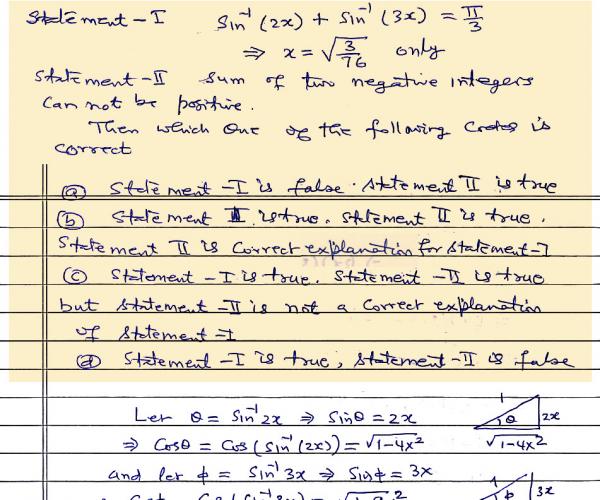 Statement-I Sin⁻¹(2x) + Sin⁻¹(3x) = π/3
⇒ x = √(3/76) only
Statement-II Sum of two negative integers
Can not be positive.
Then which one of the following Codes is
Correct
(a) Statement-I is false. Statement II is true
(b) Statement I is true. Statement II is true.
Statement II is Correct explanation for Statement-I
(c) Statement-I is true. Statement-II is true
but Statement-II is not a Correct explanation
of Statement-I
(d) Statement-I is true, Statement-II is false
Let θ = Sin⁻¹2x ⇒ Sinθ = 2x
1 2x θ
⇒ Cosθ = Cos(Sin⁻¹(2x)) = √1-4x²
√1-4x²
and let ϕ = Sin⁻¹3x ⇒ Sinϕ = 3x
1 3x